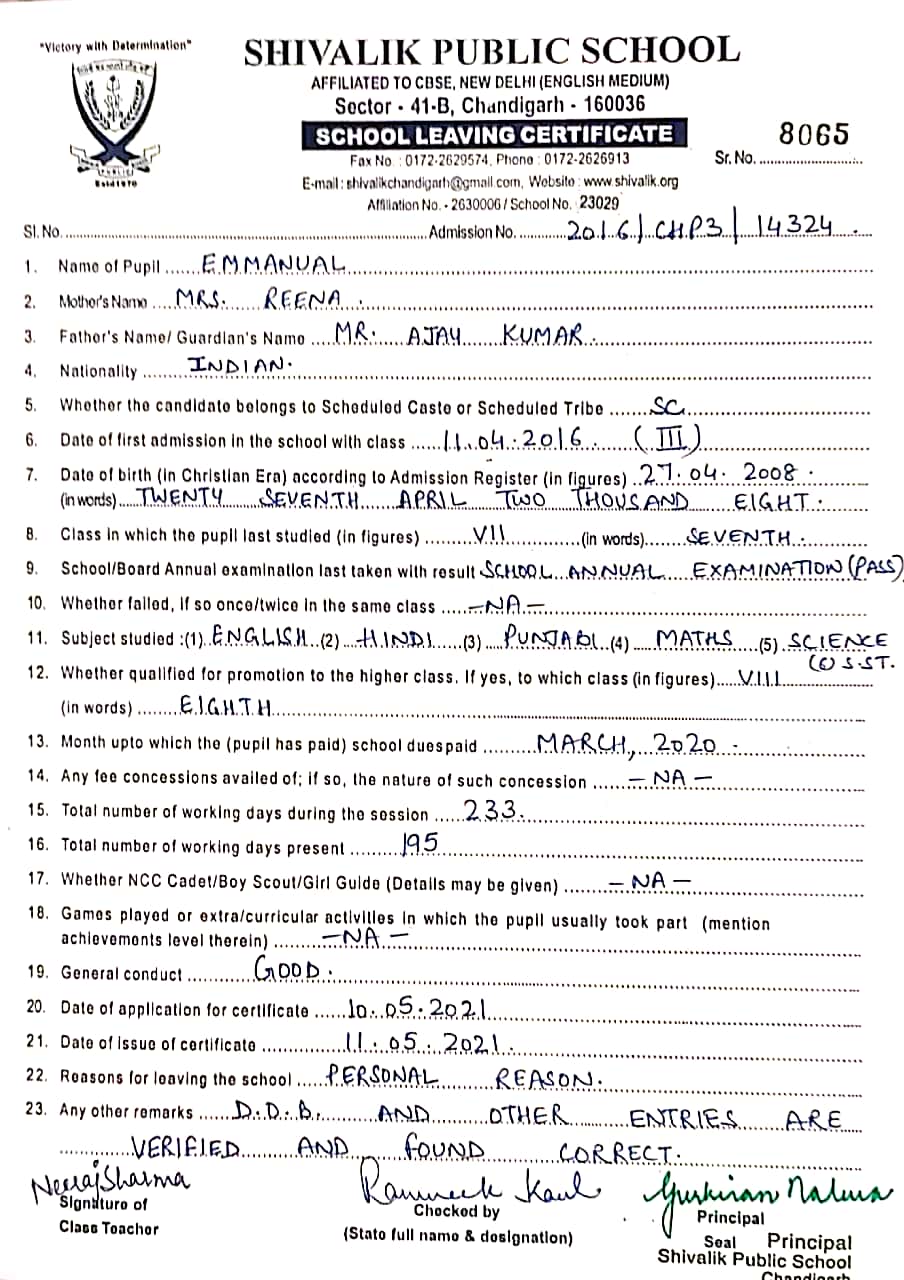 "Victory with Determination"
SHIVALIK PUBLIC SCHOOL
AFFILIATED TO CBSE, NEW DELHI (ENGLISH MEDIUM)
Sector - 41-B, Chandigarh - 160036
SCHOOL LEAVING CERTIFICATE
Sr. No. 8065
Fax No. : 0172-2629574, Phone : 0172-2626913
E-mail : shivalikchandigarh@gmail.com, Website : www.shivalik.org
Affiliation No. - 2630006 / School No. 23029
Estd 1970
Sl. No. Admission No. 2016/CHP3/14324.
1. Name of Pupil EMMANUAL
2. Mother's Name MRS. REENA.
3. Father's Name/ Guardian's Name MR. AJAY KUMAR.
4. Nationality INDIAN.
5. Whether the candidate belongs to Scheduled Caste or Scheduled Tribe SC
6. Date of first admission in the school with class 11.04.2016. (III)
7. Date of birth (in Christian Era) according to Admission Register (in figures) 27.04.2008.
(in words) TWENTY SEVENTH APRIL TWO THOUSAND EIGHT.
8. Class in which the pupil last studied (in figures) VII (in words) SEVENTH.
9. School/Board Annual examination last taken with result SCHOOL ANNUAL EXAMINATION (PASS)
10. Whether failed, if so once/twice in the same class -NA-
11. Subject studied :(1) ENGLISH (2) HINDI (3) PUNJABI (4) MATHS (5) SCIENCE
(6) S.ST.
12. Whether qualified for promotion to the higher class. If yes, to which class (in figures) VIII
(in words) EIGHTH
13. Month upto which the (pupil has paid) school duespaid MARCH, 2020.
14. Any fee concessions availed of; if so, the nature of such concession -NA-
15. Total number of working days during the session 233.
16. Total number of working days present 195
17. Whether NCC Cadet/Boy Scout/Girl Guide (Details may be given) -NA-
18. Games played or extra/curricular activities in which the pupil usually took part (mention
achievements level therein) -NA-
19. General conduct GOOD.
20. Date of application for certificate 10.05.2021
21. Date of issue of certificate 11.05.2021.
22. Reasons for leaving the school PERSONAL REASON.
23. Any other remarks D.O.B. AND OTHER ENTRIES ARE
VERIFIED AND FOUND CORRECT.
Neeraj Sharma Ramneek Kaul Gurkiran
Signature of Checked by Principal
Class Teacher (State full name & designation) Seal Principal
Shivalik Public School
Chandigarh